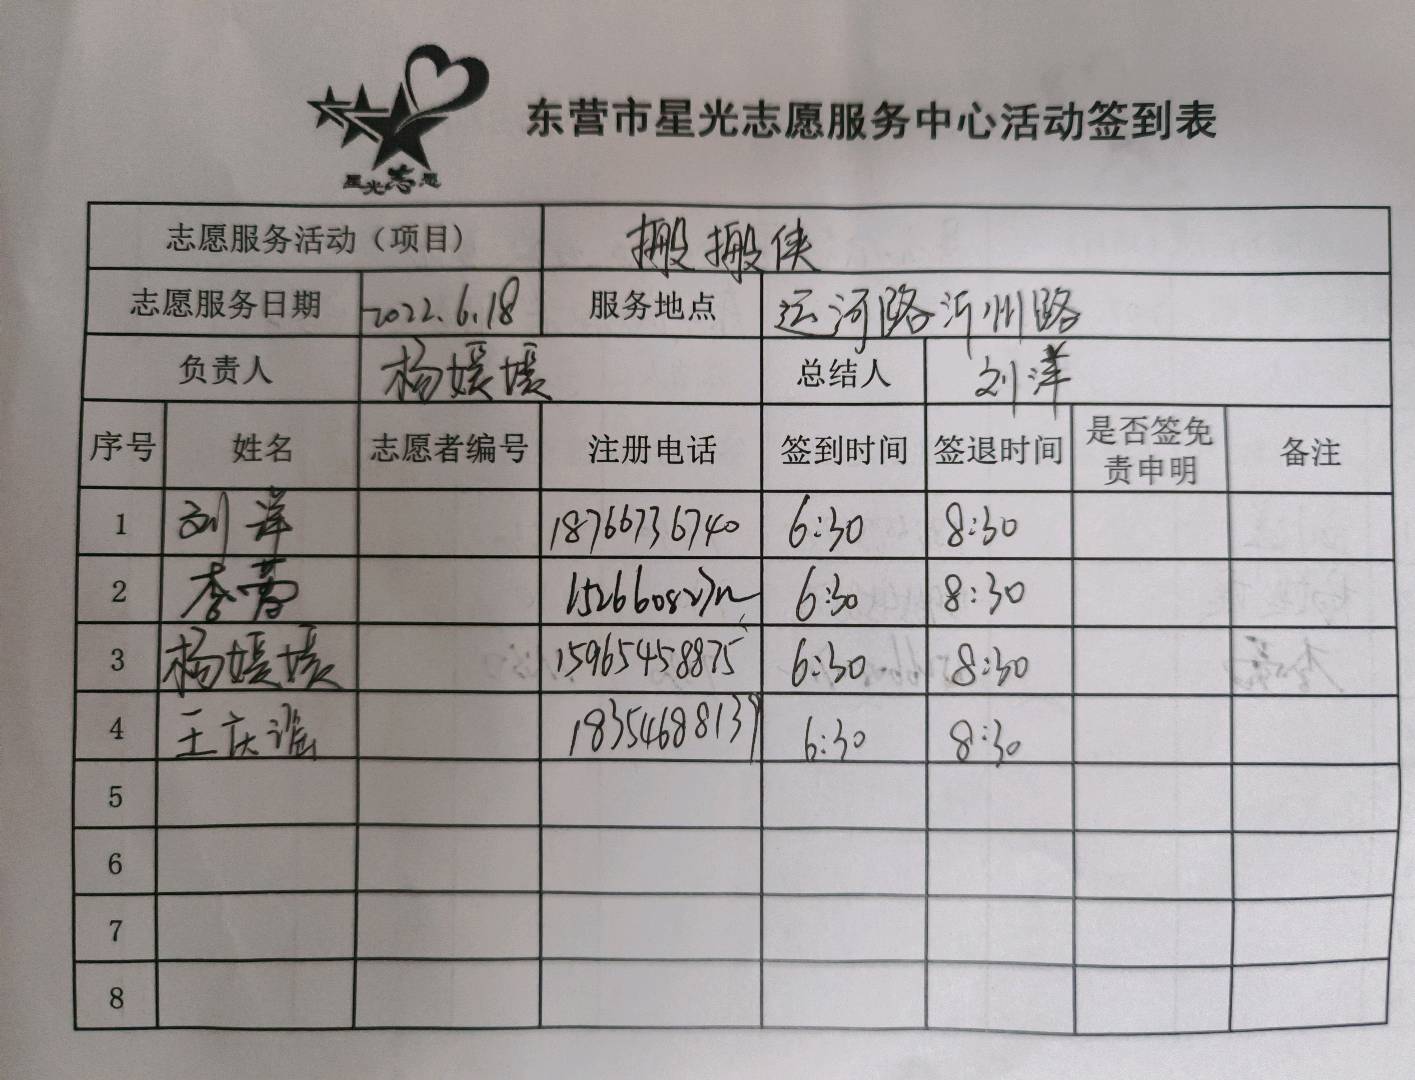 星光志愿
东营市星光志愿服务中心活动签到表
志愿服务活动（项目） 搬搬侠
志愿服务日期 2022.6.18 服务地点 运河路沂州路
负责人 杨媛媛 总结人 刘洋
序号 姓名 志愿者编号 注册电话 签到时间 签退时间 是否签免责申明 备注
1 刘洋 18766736740 6:30 8:30
2 李 6:30 8:30
3 杨媛媛 15965458875 6:30 8:30
4 王庆谣 18354688139 6:30 8:30
5
6
7
8